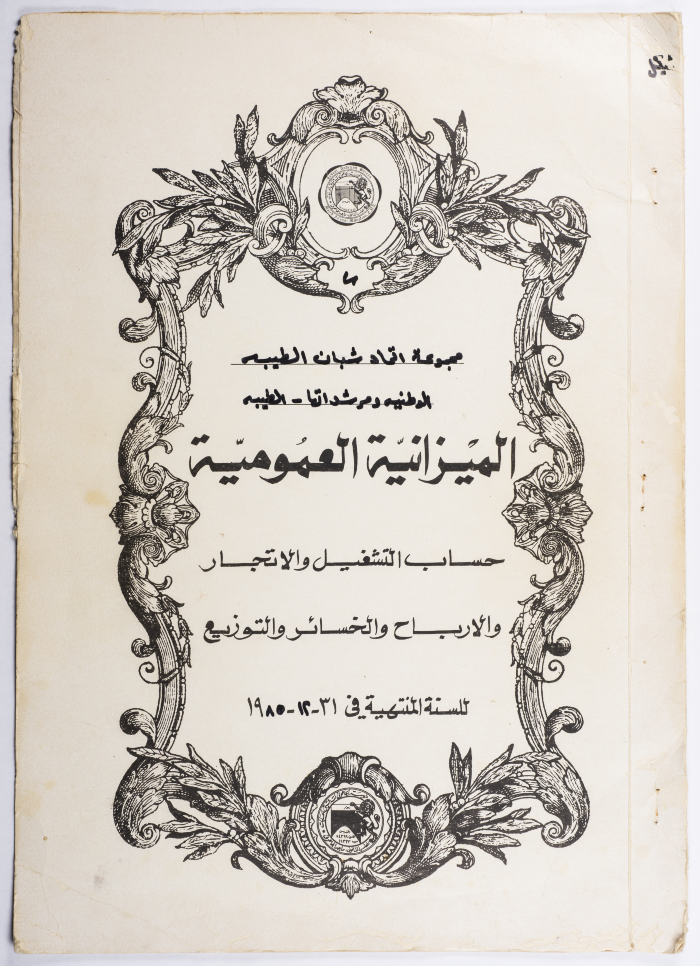 شيكل
٢٨
مجموعة اتحاد شبان الطيبه
الوطنيه ومرشداتها - الطيبه
الميْزانيّة العمُوميّة
حساب التشغيل والاتجار
والارباح والخسائر والتوزيع
للسنة المنتهية في ٣١-١٢-١٩٨٥